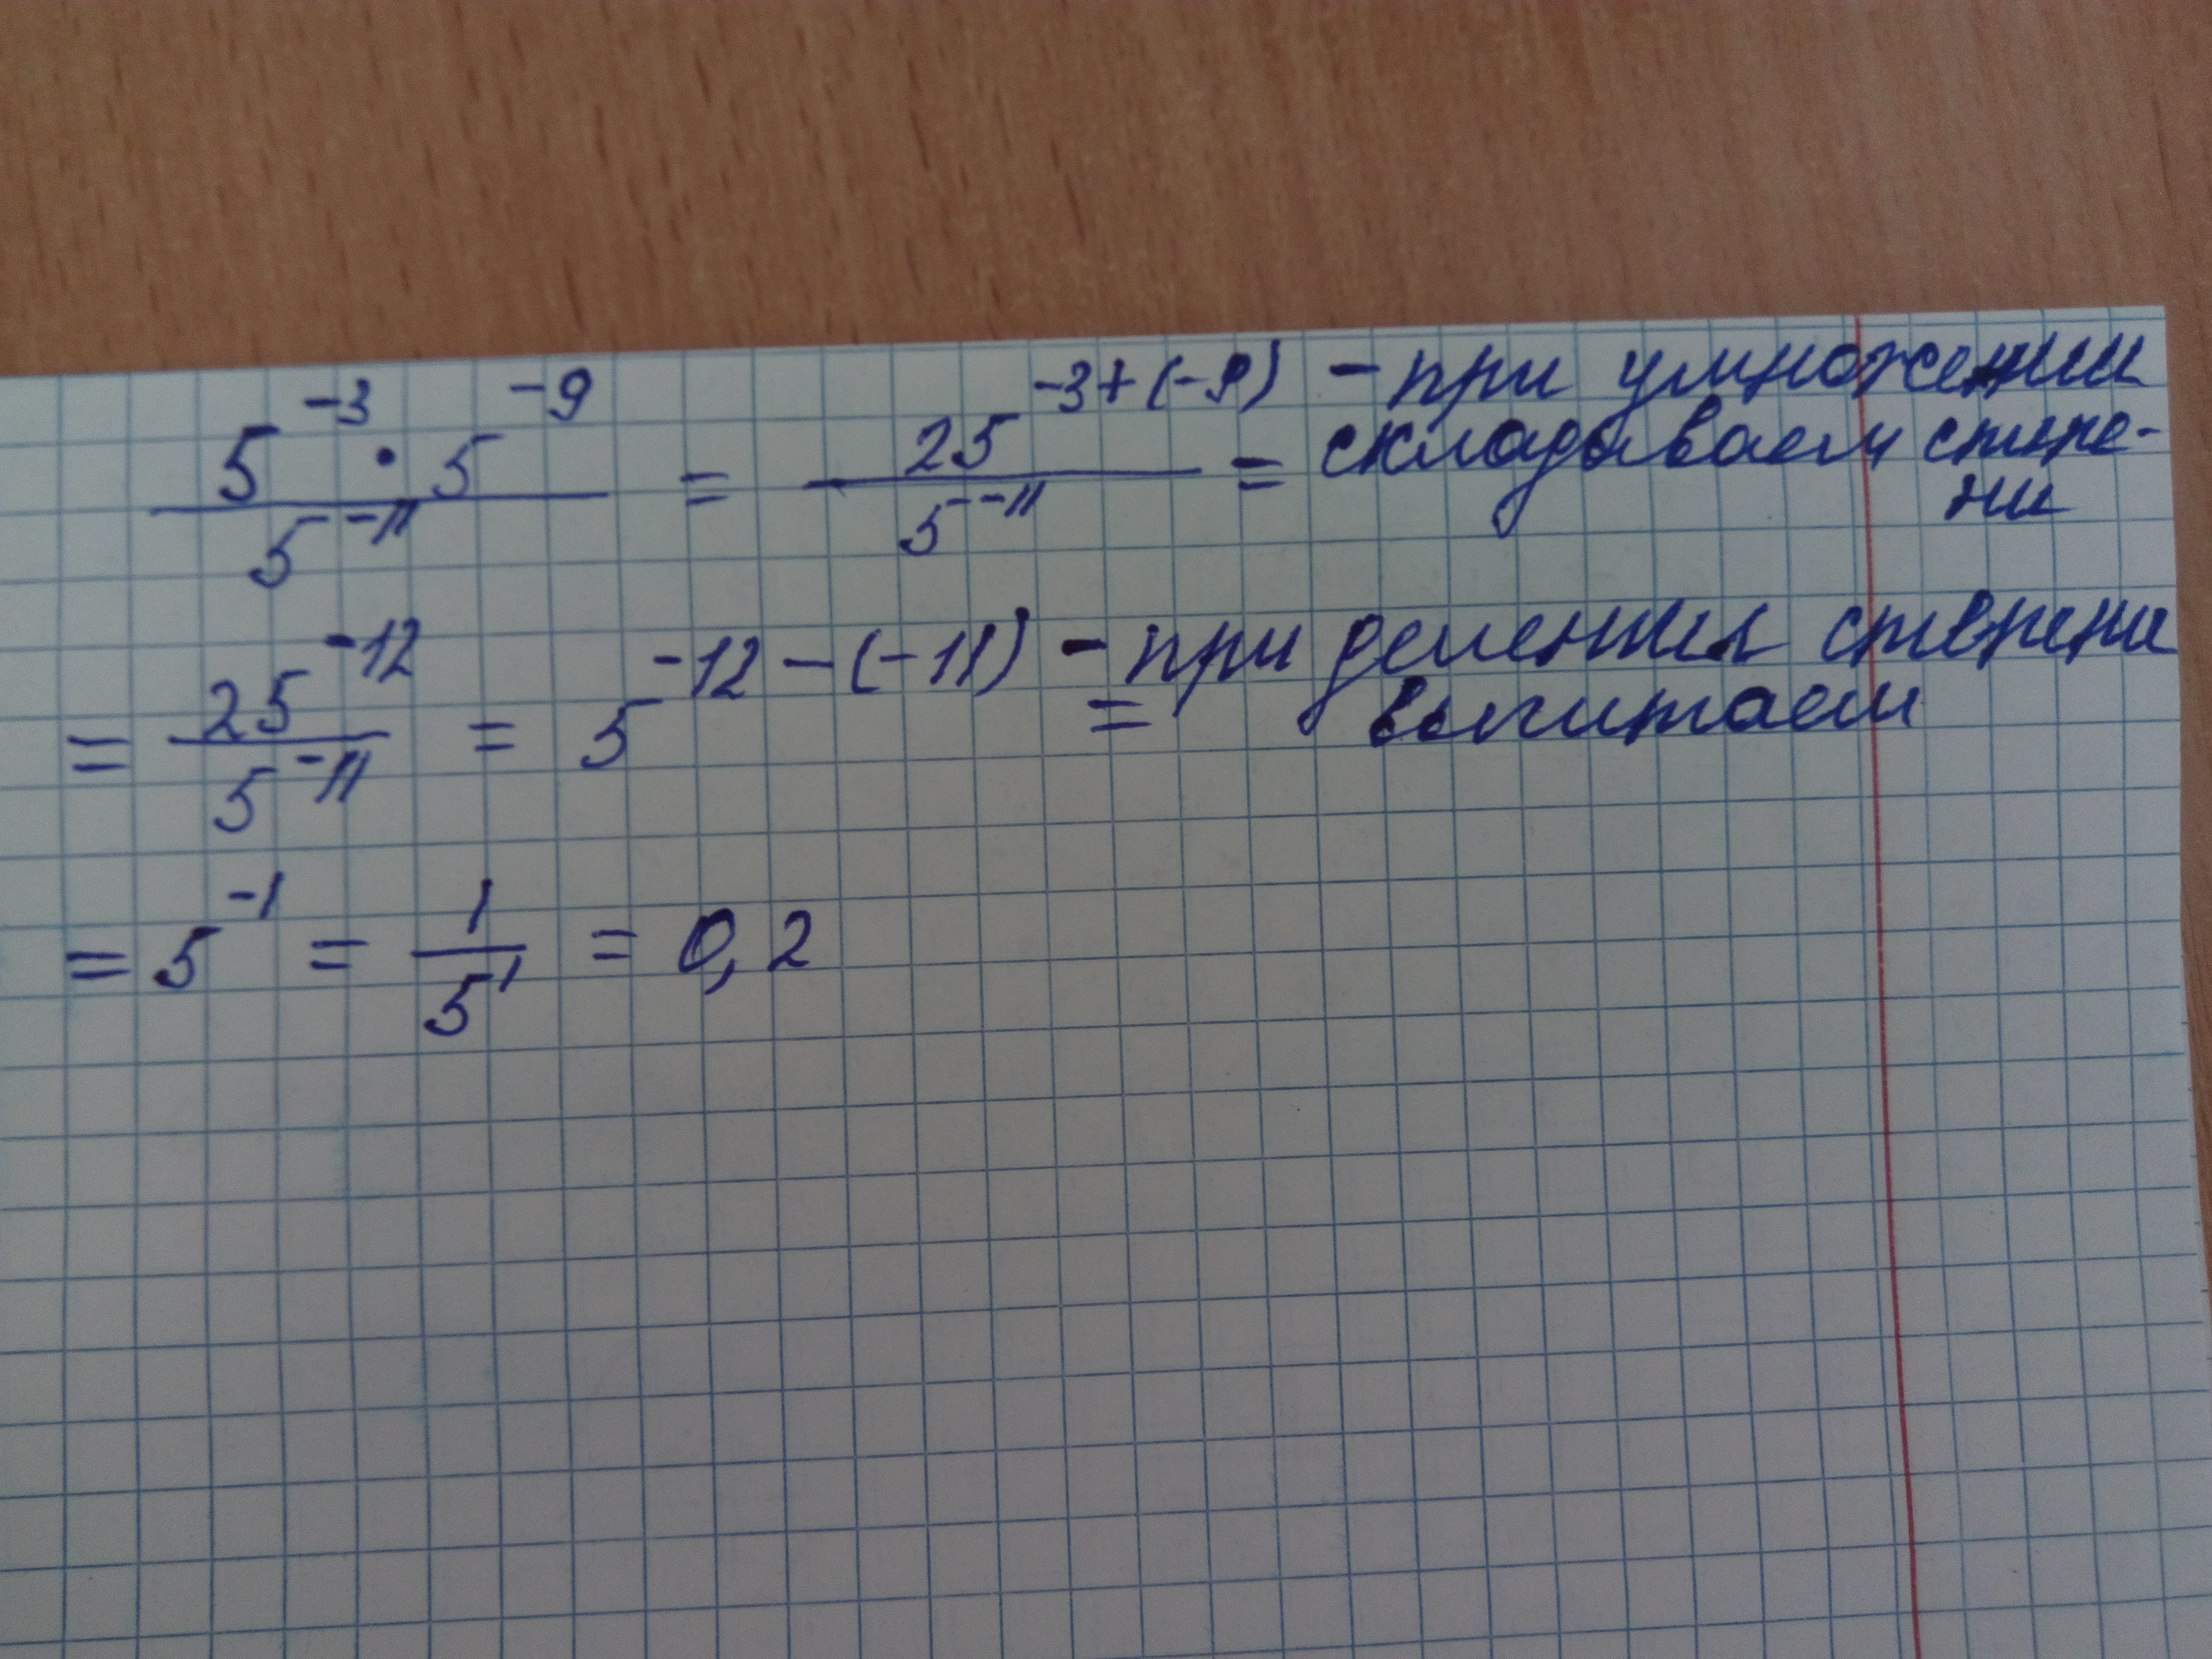 5^{-3} · 5^{-9} / 5^{-11} = 25^{-3+(-9)} / 5^{-11} = - при умножении
складываем степе-
ни
= 25^{-12} / 5^{-11} = 5^{-12-(-11)} = - при делении степени
вычитаем
= 5^{-1} = 1 / 5^{1} = 0,2